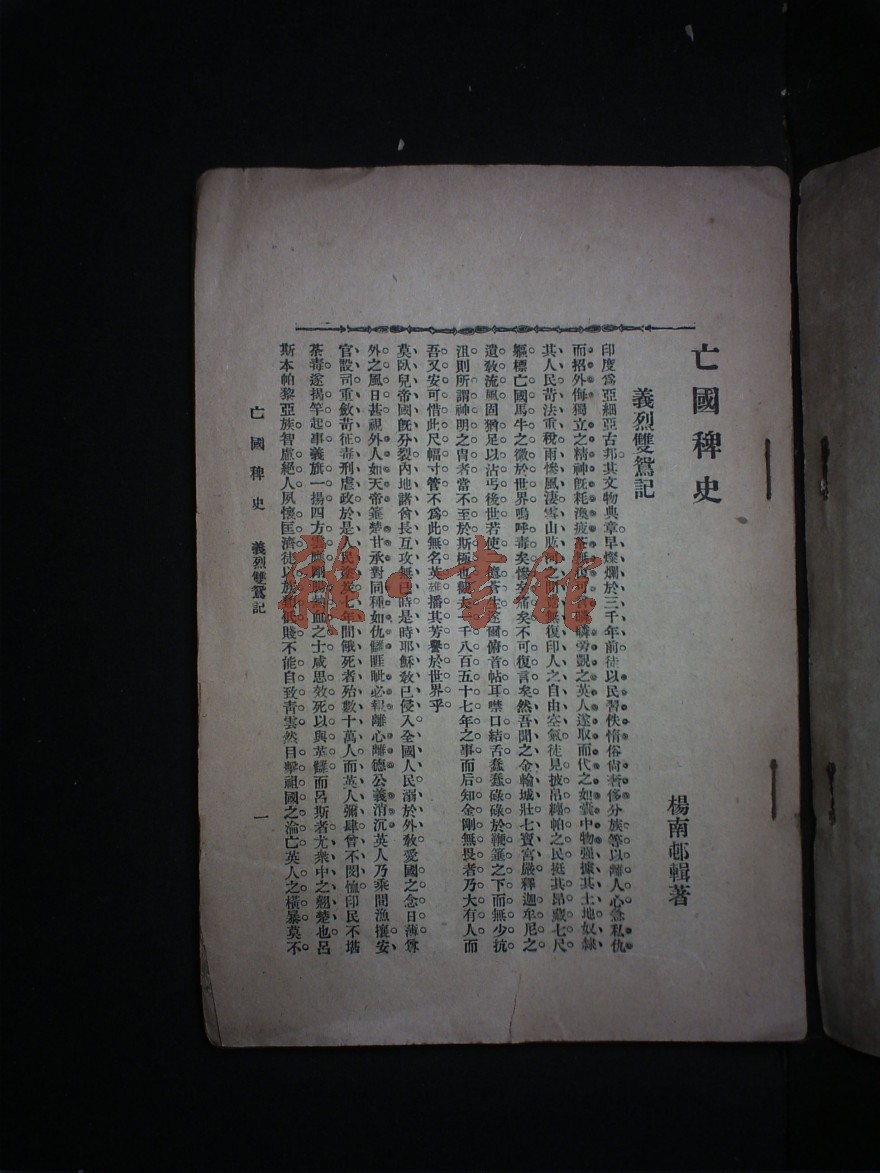 亡國稗史
楊南邨輯著
義烈雙鴛記
印度爲亞細亞古邦其文物典章早燦爛於三千年前徒以民習佚惰俗尙奢侈分族等以離人心急私仇
而招外侮獨立之精神旣耗渙疲茶旁覬之英人遂取而代之如囊中物強據其土地奴隸
其人民苛法重稅雨慘風淒雪山恆河之間無復印人之自由空氣徒見披帛纏帕之民挺其昂藏七尺
軀標亡國馬牛之徽於世界嗚呼毒矣慘矣痛矣不可復言矣然吾聞之金輪城壯七寶宮嚴釋迦牟尼之
遺敎流風固猶足以沾丐後世若使億蒼生遂爾俯首帖耳噤口結舌蠢蠢碌碌於鞭箠之下而無少抗
沮則所謂神明之胄者當不至於斯極也觀夫一千八百五十七年之事而后知金剛無畏者乃大有人而
吾又安可惜此尺幅寸管不爲此無名英雄播其芳譽於世界乎
莫臥兒帝國旣分裂內地諸酋長互攻無已時是時耶穌敎已侵入全國人民溺於外敎愛國之念日薄尊
外之風日甚視外人如天帝箠楚甘承對同種如仇讎睚眦必報離心離德公義消沉英人乃乘間漁攘安
官設司重斂苛征毒刑虐政於是人民塗炭七年間餓死者殆數十萬人而英人彌肆曾不閔恤印民不堪
荼毒遂揭竿起事義旗一揚四方雲應剛膽熱血之士咸思效死以與英讎而呂斯者尤衆中之翹楚也呂
斯本帕黎亞族智慮絕人夙懷匡濟徒以族籍低賤不能自致靑雲然目擊祖國之淪亡英人之橫暴莫不
亡國稗史　義烈雙鴛記
一